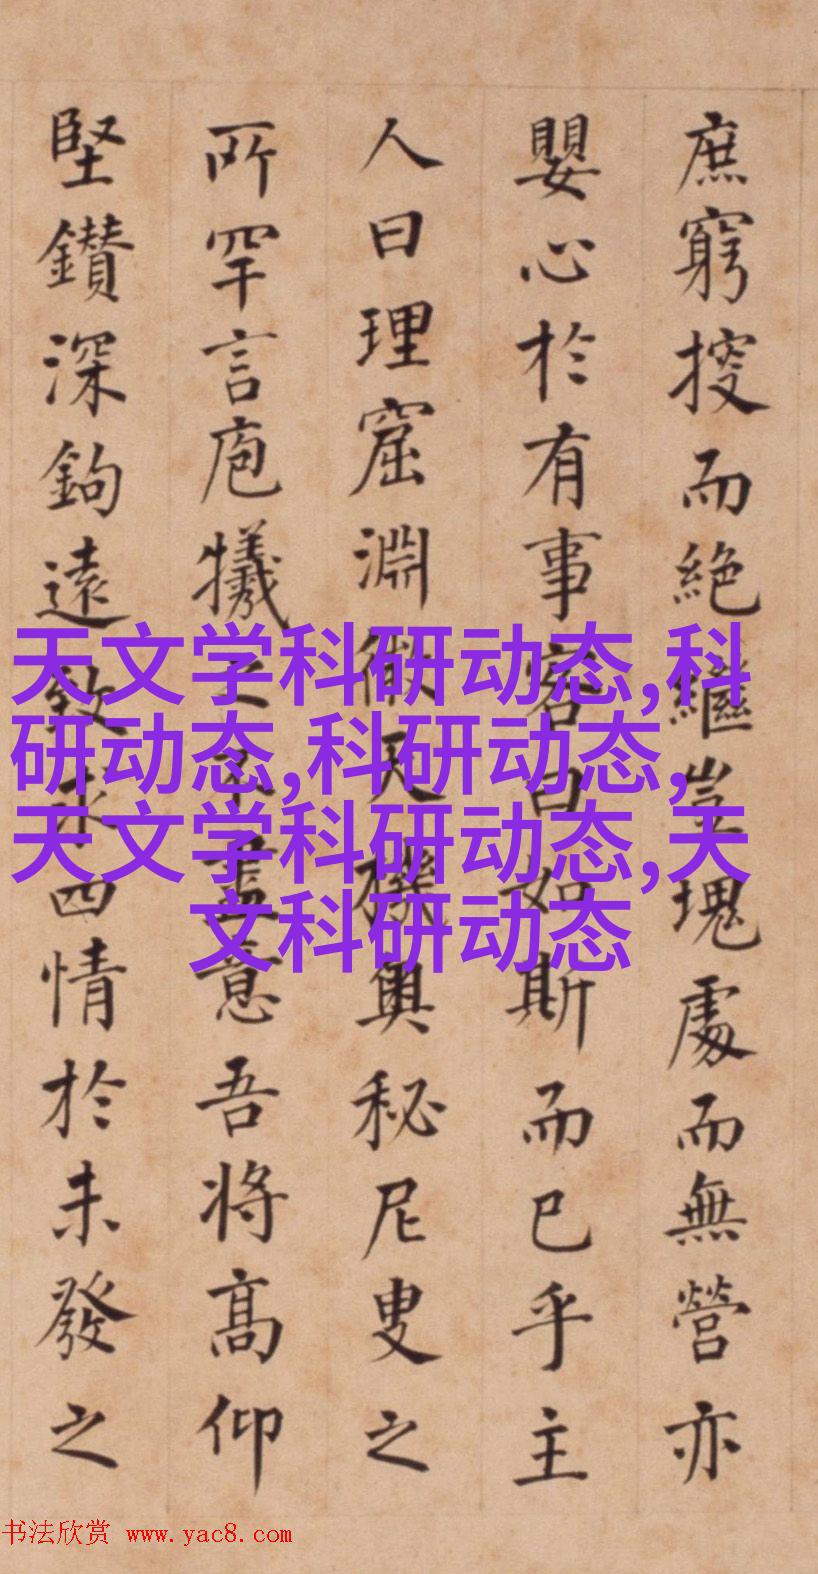 庶窮搜而絶繼豈塊處而無營亦
嬰心於有事客曰如斯而已乎主
人曰理窟淵微天機奥秘尼叟之
所罕言庖犧之不盡意吾將髙仰
堅鑽深鉤遠致求四情於未發之
天文学科研动态,科
研动态,科研动态,
天文学科研动态,天
文科研动态
书法欣赏 www.yac8.com